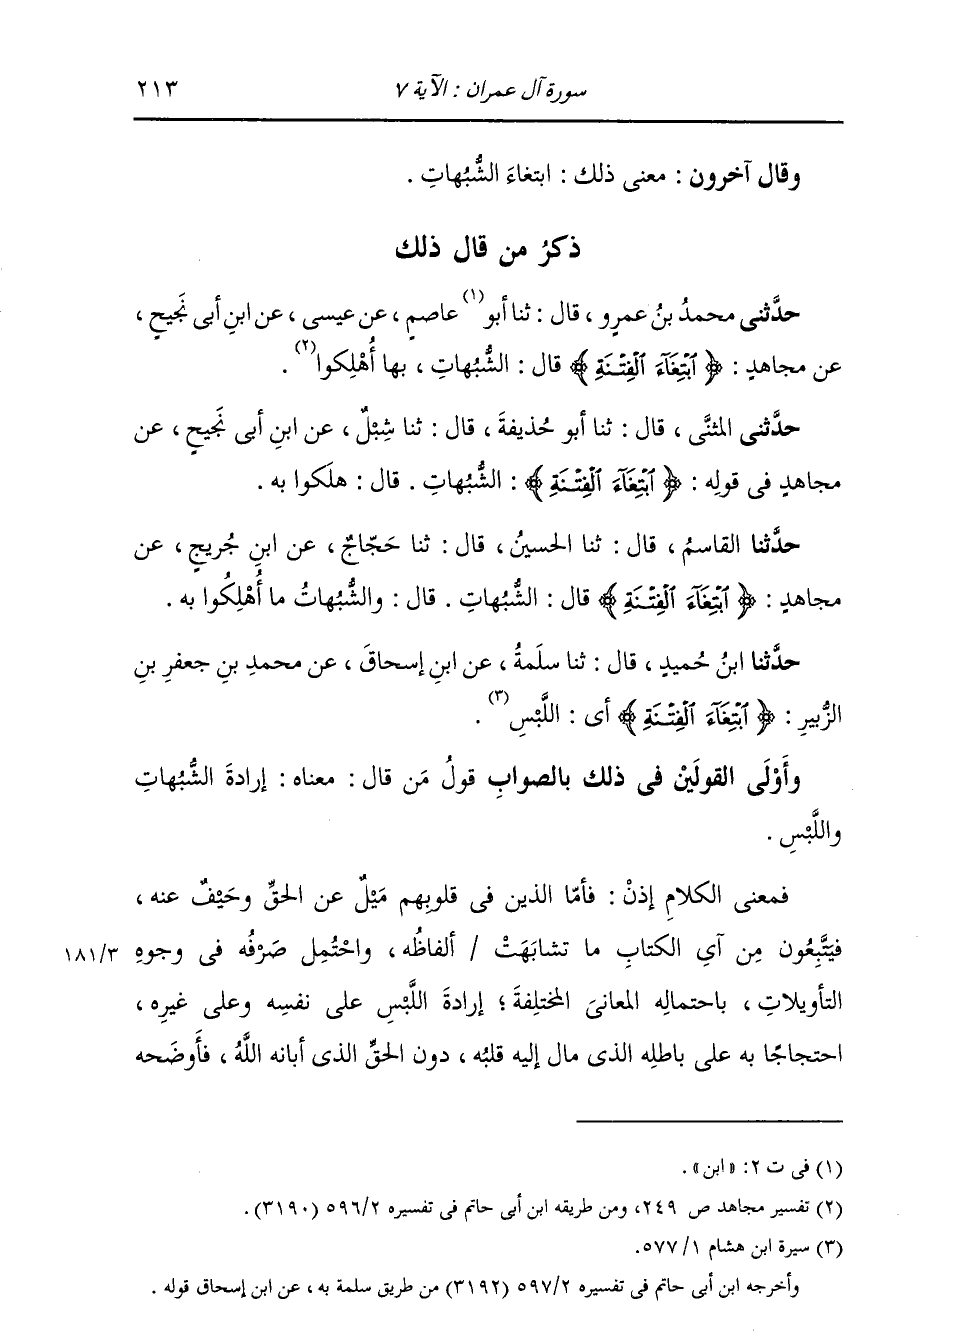 سورة آل عمران : الآية ٧ ٢١٣
وقال آخرون : معنى ذلك : ابتغاءَ الشُّبُهاتِ .
ذكرُ من قال ذلك
حدَّثنى محمدُ بنُ عمرٍو ، قال : ثنا أبو(١) عاصمٍ ، عن عيسى ، عن ابنِ أبى نَجيحٍ ،
عن مجاهدٍ : ﴿ ٱبْتِغَآءَ ٱلْفِتْنَةِ ﴾ قال : الشُّبُهاتِ ، بها أُهْلِكوا(٢) .
حدَّثنى المثنَّى ، قال : ثنا أبو حُذيفةَ ، قال : ثنا شِبْلٌ ، عن ابنِ أبى نَجيحٍ ، عن
مجاهدٍ فى قولِه : ﴿ ٱبْتِغَآءَ ٱلْفِتْنَةِ ﴾ : الشُّبُهاتِ . قال : هلَكوا به .
حدَّثنا القاسمُ ، قال : ثنا الحسينُ ، قال : ثنا حَجّاجٌ ، عن ابنِ جُريجٍ ، عن
مجاهدٍ : ﴿ ٱبْتِغَآءَ ٱلْفِتْنَةِ ﴾ قال : الشُّبُهاتِ . قال : والشُّبُهاتُ ما أُهْلِكُوا به .
حدَّثنا ابنُ حُميدٍ ، قال : ثنا سلَمةُ ، عن ابنِ إسحاقَ ، عن محمدِ بنِ جعفرِ بنِ
الزُّبيرِ : ﴿ ٱبْتِغَآءَ ٱلْفِتْنَةِ ﴾ أى : اللَّبْسِ(٣) .
وأَوْلَى القولَيْنِ فى ذلك بالصوابِ قولُ مَن قال : معناه : إرادةَ الشُّبُهاتِ
واللَّبْسِ .
فمعنى الكلامِ إذنْ : فأمّا الذين فى قلوبِهم مَيْلٌ عن الحقِّ وحَيْفٌ عنه ،
فيَتَّبِعُون مِن آيِ الكتابِ ما تشابَهَتْ / ألفاظُه ، واحْتُمِل صَرْفُه فى وجوهِ ١٨١/٣
التأويلاتِ ، باحتمالِه المعانىَ المختلِفةَ ؛ إرادةَ اللَّبْسِ على نفسِه وعلى غيرِه ،
احتجاجًا به على باطلِه الذى مال إليه قلبُه ، دون الحقِّ الذى أبانه اللَّهُ ، فأَوضَحه
(١) فى ت ٢: «ابن» .
(٢) تفسير مجاهد ص ٢٤٩، ومن طريقه ابن أبى حاتم فى تفسيره ٥٩٦/٢ (٣١٩٠) .
(٣) سيرة ابن هشام ١/ ٥٧٧.
وأخرجه ابن أبى حاتم فى تفسيره ٥٩٧/٢ (٣١٩٢) من طريق سلمة به ، عن ابن إسحاق قوله .